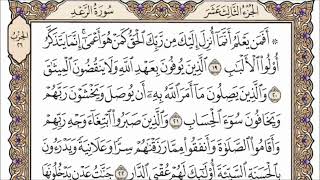 الجزء الثالث عشر
سورة الرعد
الحزب
٢٦
أَفَمَن يَعْلَمُ أَنَّمَا أُنزِلَ إِلَيْكَ مِن رَّبِّكَ الْحَقُّ كَمَنْ هُوَ أَعْمَىٰ إِنَّمَا يَتَذَكَّرُ
أُولُوا الْأَلْبَابِ ١٩ الَّذِينَ يُوفُونَ بِعَهْدِ اللَّهِ وَلَا يَنقُضُونَ الْمِيثَاقَ
٢٠ وَالَّذِينَ يَصِلُونَ مَا أَمَرَ اللَّهُ بِهِ أَن يُوصَلَ وَيَخْشَوْنَ رَبَّهُمْ
وَيَخَافُونَ سُوءَ الْحِسَابِ ٢١ وَالَّذِينَ صَبَرُوا ابْتِغَاءَ وَجْهِ رَبِّهِمْ
وَأَقَامُوا الصَّلَاةَ وَأَنفَقُوا مِمَّا رَزَقْنَاهُمْ سِرًّا وَعَلَانِيَةً وَيَدْرَءُونَ
بِالْحَسَنَةِ السَّيِّئَةَ أُولَٰئِكَ لَهُمْ عُقْبَى الدَّارِ ٢٢ جَنَّاتُ عَدْنٍ يَدْخُلُونَهَا